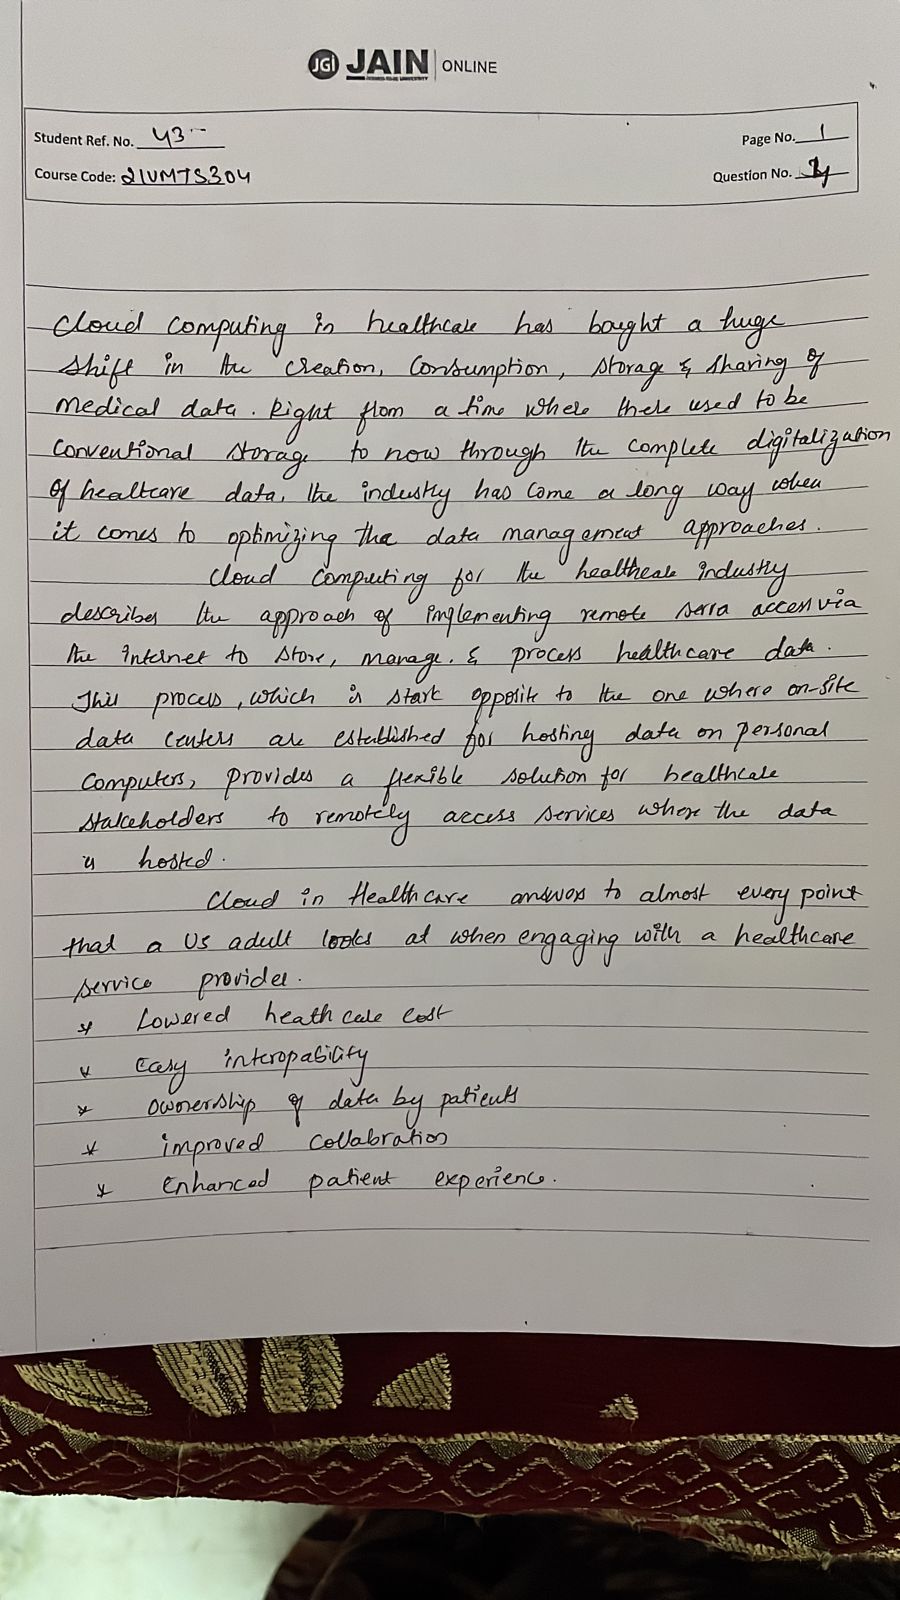 JGI JAIN ONLINE
Student Ref. No. 43
Page No. 1
Course Code: 21VMTS304
Question No.
Cloud computing in healthcare has bought a huge
shift in the creation, Consumption, storage & sharing of
medical data. Right from a time where there used to be
conventional storage to now through the complete digitalization
of healtcare data, the industry has come a long way when
it comes to optimizing the data management approaches.
Cloud computing for the healthcare industry
describes the approach of implementing remote access via
the internet to store, manage, & process healthcare data.
This process, which is stark opposite to the one where on-site
data centers are established for hosting data on personal
computers, provides a flexible solution for healthcare
stakeholders to remotely access services where the data
is hosted.
Cloud in Healthcare answers to almost every point
that a US adult looks at when engaging with a healthcare
service provider.
* Lowered heath care cost
* Easy interopability
* ownership of data by patients
* improved collabration
* Enhanced patient experience.